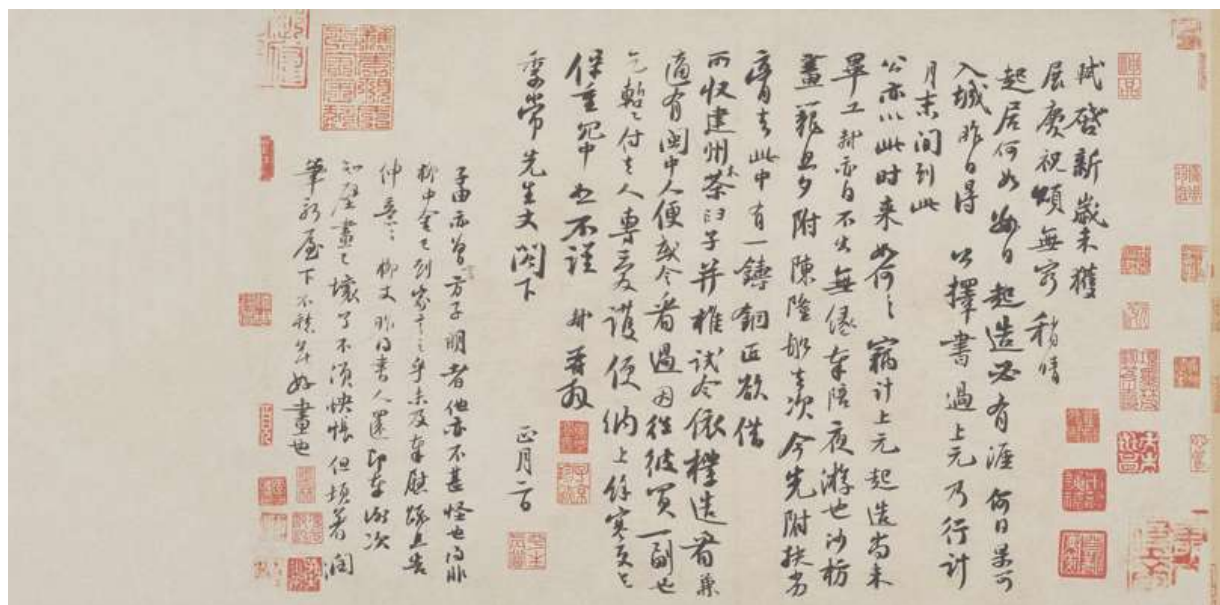 軾啓新歲未獲
展慶祝頌無窮稍晴
起居何如數日起造必有涯何日果可
入城昨日得公擇書過上元乃行計
月末間到此
公亦以此時来如何々竊計上元起造尚未
畢工軾亦自不出無緣奉陪夜游也沙枋
畫籠旦夕附陳隆船去次今先附扶劣
膏去此中有一鑄銅匠欲借
所收建州木茶臼子并椎試令依樣造看兼
適有閩中人便或令看過因往彼買一副也
乞暫付去人專愛護便納上餘寒更乞
保重冗中恕不謹軾再拜
季常先生丈閣下正月二日
子由亦曾言方子明者他亦不甚怪也得非
柳中舍已到家言之乎未及奉慰疏且告
伸意々柳丈昨得書人還即奉謝次
知壁畫已壞了不須怏悵但頓著潤
筆新屋下不愁無好畫也